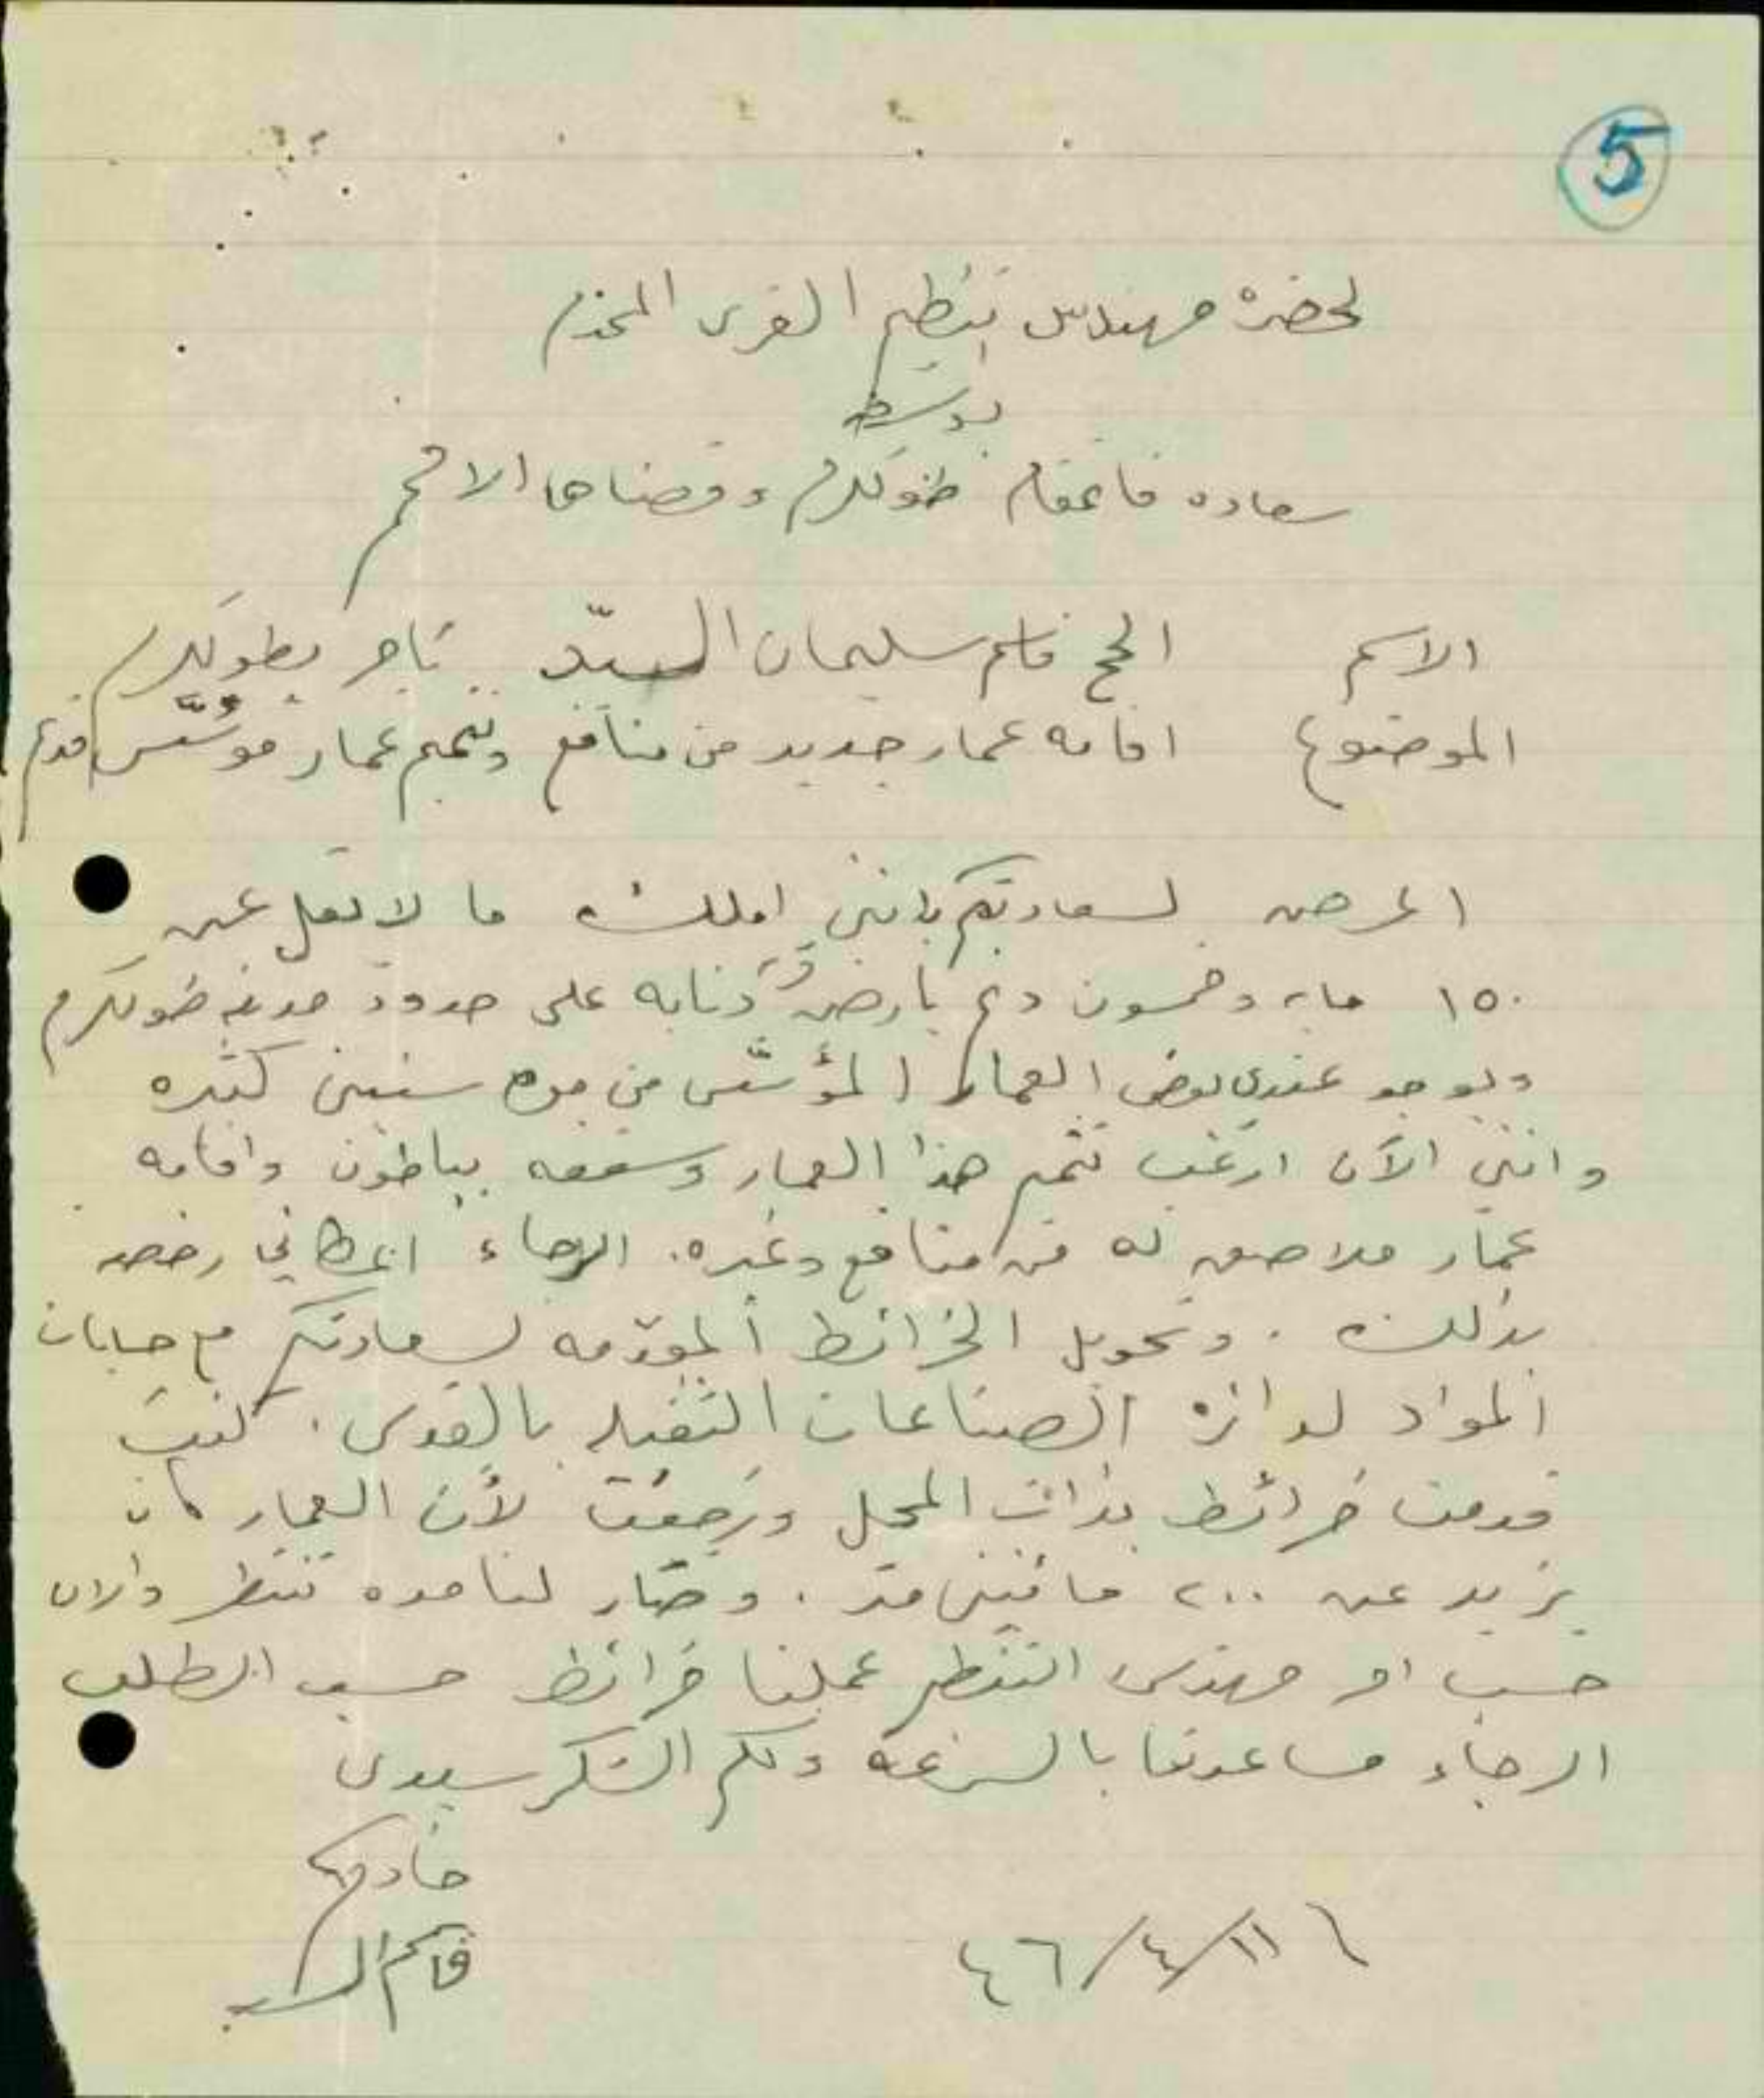 5
لحضرة مهندس تنظيم القرى المحترم
بواسطة
سعاده قائمقام طولكرم وقضاها الافخم
الاسم الحج قاسم سليمان السيّد تاجر بطولكرم
الموضوع اقامه عمار جديد من منافع وتتميم عمار مؤسّس قديم
اعرض لسعادتكم بانني املك ما لا يقل عن
١٥٠ مايه وخمسون دنم بارض ذنابه على حدود مدينة طولكرم
ويوجد عندي بعض العمار المؤسّس من مده سنين كثيره
وانني الآن ارغب تتميم هذا العمار وسقفه بباطون واقامه
عمار ملاصق له من منافع وغيره. الرجاء اعطائي رخصه
بذلك. وتحويل الخرائط المقدّمه لسعادتكم مع حسابات
المواد لدائرة الصناعات الثقيله بالقدس. كنت
قدمت خرائط بذات المحل ورجعت لأن العمار كان
يزيد عن ٢٠٠ مائتين متر. وصار لنا مده ننتظر والان
حسب امر مهندس التنظيم عملنا خرائط حسب الطلب
الرجاء مساعدتنا بالسرعة ولكم الشكر سيدي
خادمكم
قاسم السيد
١١/٤/٤٦